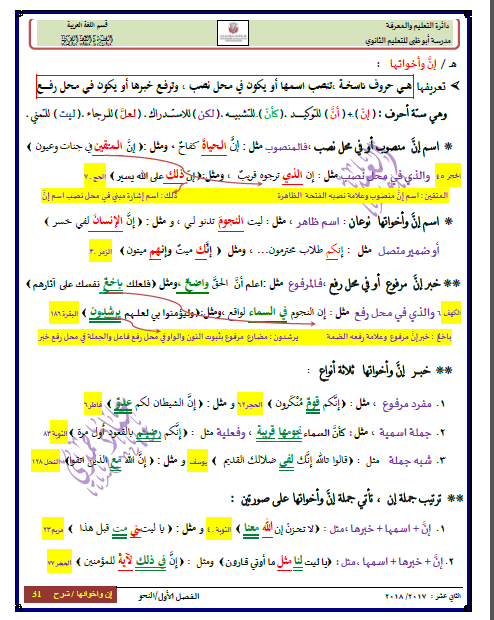 دائرة التعليم والمعرفة
قسم اللغة العربية
مدرسة أبو ظبي للتعليم الثانوي
هـ / إنَّ وأخواتها :
تعريفها هـي حروف ناسخـة ،تنصب اسمها أو يكون في محل نصب ، وترفع خبرها أو يكون في محل رفـع
وهي ستة أحرف : (إنَّ)+(أنَّ) للتوكيـد .(كأنَّ).للتشبيـه .(لكن)للاستدراك. (لعلَّ)للرجاء .(ليت) للتمني.
* اسم إنَّ منصوب أو في محل نصب ،فالمنصوب مثل : إنَّ الحياةَ كفاحٌ ، ومثل :( إنَّ المتقين في جنات وعيون )
الحجر ٤٥ والذي في محل نصب مثل : إن الذي ترجوه قريبٌ ، ومثل:( إنَّ ذلك على الله يسير ) الحج ٧٠
المتقين : اسم إنَّ منصوب وعلامة نصبه الفتحة الظاهرة ذلك: اسم إشارة مبني في محل نصب اسم إنَّ
* اسم إنَّ وأخواتها نوعان : اسم ظاهر ، مثل : ليت النجومَ تدنو لي ، و مثل : ( إنَّ الإنسانَ لفي خسر )
أو ضمير متصل مثل : إنكم طلاب محترمون... ، ومثل ( إنَّك ميتٌ وإنهم ميتون ) الزمر ٣٠
** خبر إنَّ مرفوع أو في محل رفع ،فالمرفوع مثل :اعلم أنَّ الحقَّ واضحٌ ،ومثل (فلعلك باخعٌ نفسك على آثارهم )
الكهف ٦ والذي في محل رفع مثل : إن النجوم في السماء لوامع ،ومثل:(وليؤمنوا بي لعلـهم يرشدون ) البقرة ١٨٦
باخعٌ : خبر إنَّ مرفوع وعلامة رفعه الضمة يرشدون : مضارع مرفوع بثبوت النون والواو في محل رفع فاعل والجملة في محل رفع خبر
** خبـر إنَّ وأخواتها ثلاثة أنواع :
١. مفرد مرفوع ، مثل : (إنَّكم قومٌ مُنْكَرون ) الحجر٦٢ و مثل : ( إنَّ الشيطان لكم عدوٌّ ) فاطر٦
٢. جملة اسمية ، مثل : كأنَّ السماء نجومها قريبة ، وفعلية مثل : ( إنَّكم رضيتم بالقعود أول مرة ) التوبة ٨٣
٣. شبه جملة مثل : (قالوا تالله إنَّك لفي ضلالك القديم ) يوسف و مثل : ( إنَّ الله مع الذين اتقوا) النحل ١٢٨
** ترتيب جملة إن ، تأتي جملة إنَّ وأخواتها على صورتين :
١. إنَّ + اسمها + خبرها ،مثل : (لا تحزنْ إن الله معنا ) التوبة ٤٠ و مثل : ( يا ليتني مت قبل هذا ) مريم٢٣
٢. إنَّ + خبرها + اسمها ، مثل : (يا ليت لنا مثل ما أوتي قارون) ومثل : ( إنَّ في ذلك لآيةً للمؤمنين ) الحجر ٧٧
الثاني عشر : ٢٠١٧/ ٢٠١٨ الفصل الأول/النحو إن وأخواتها / شرح